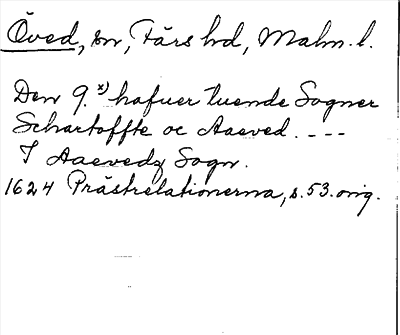 Öved, sn, Färs hd, Malm. l.
Den 9. x) hafuer tuende Sogner
Schartoffte oc Aaeved. - - -
I Aaevedz Sogn.
1624 Prästrelationerna, s. 53. orig.